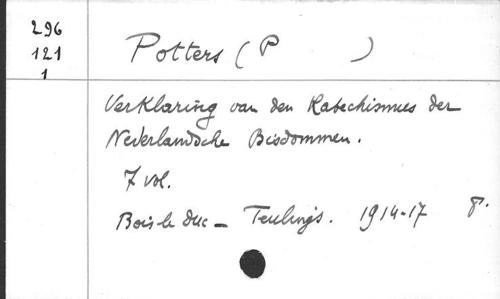 296
121
1
Potters (P )
Verklaring van den Katechismus der
Nederlandsche Bisdommen.
7 vol.
Bois le duc - Teulings. 1914-17 8°.